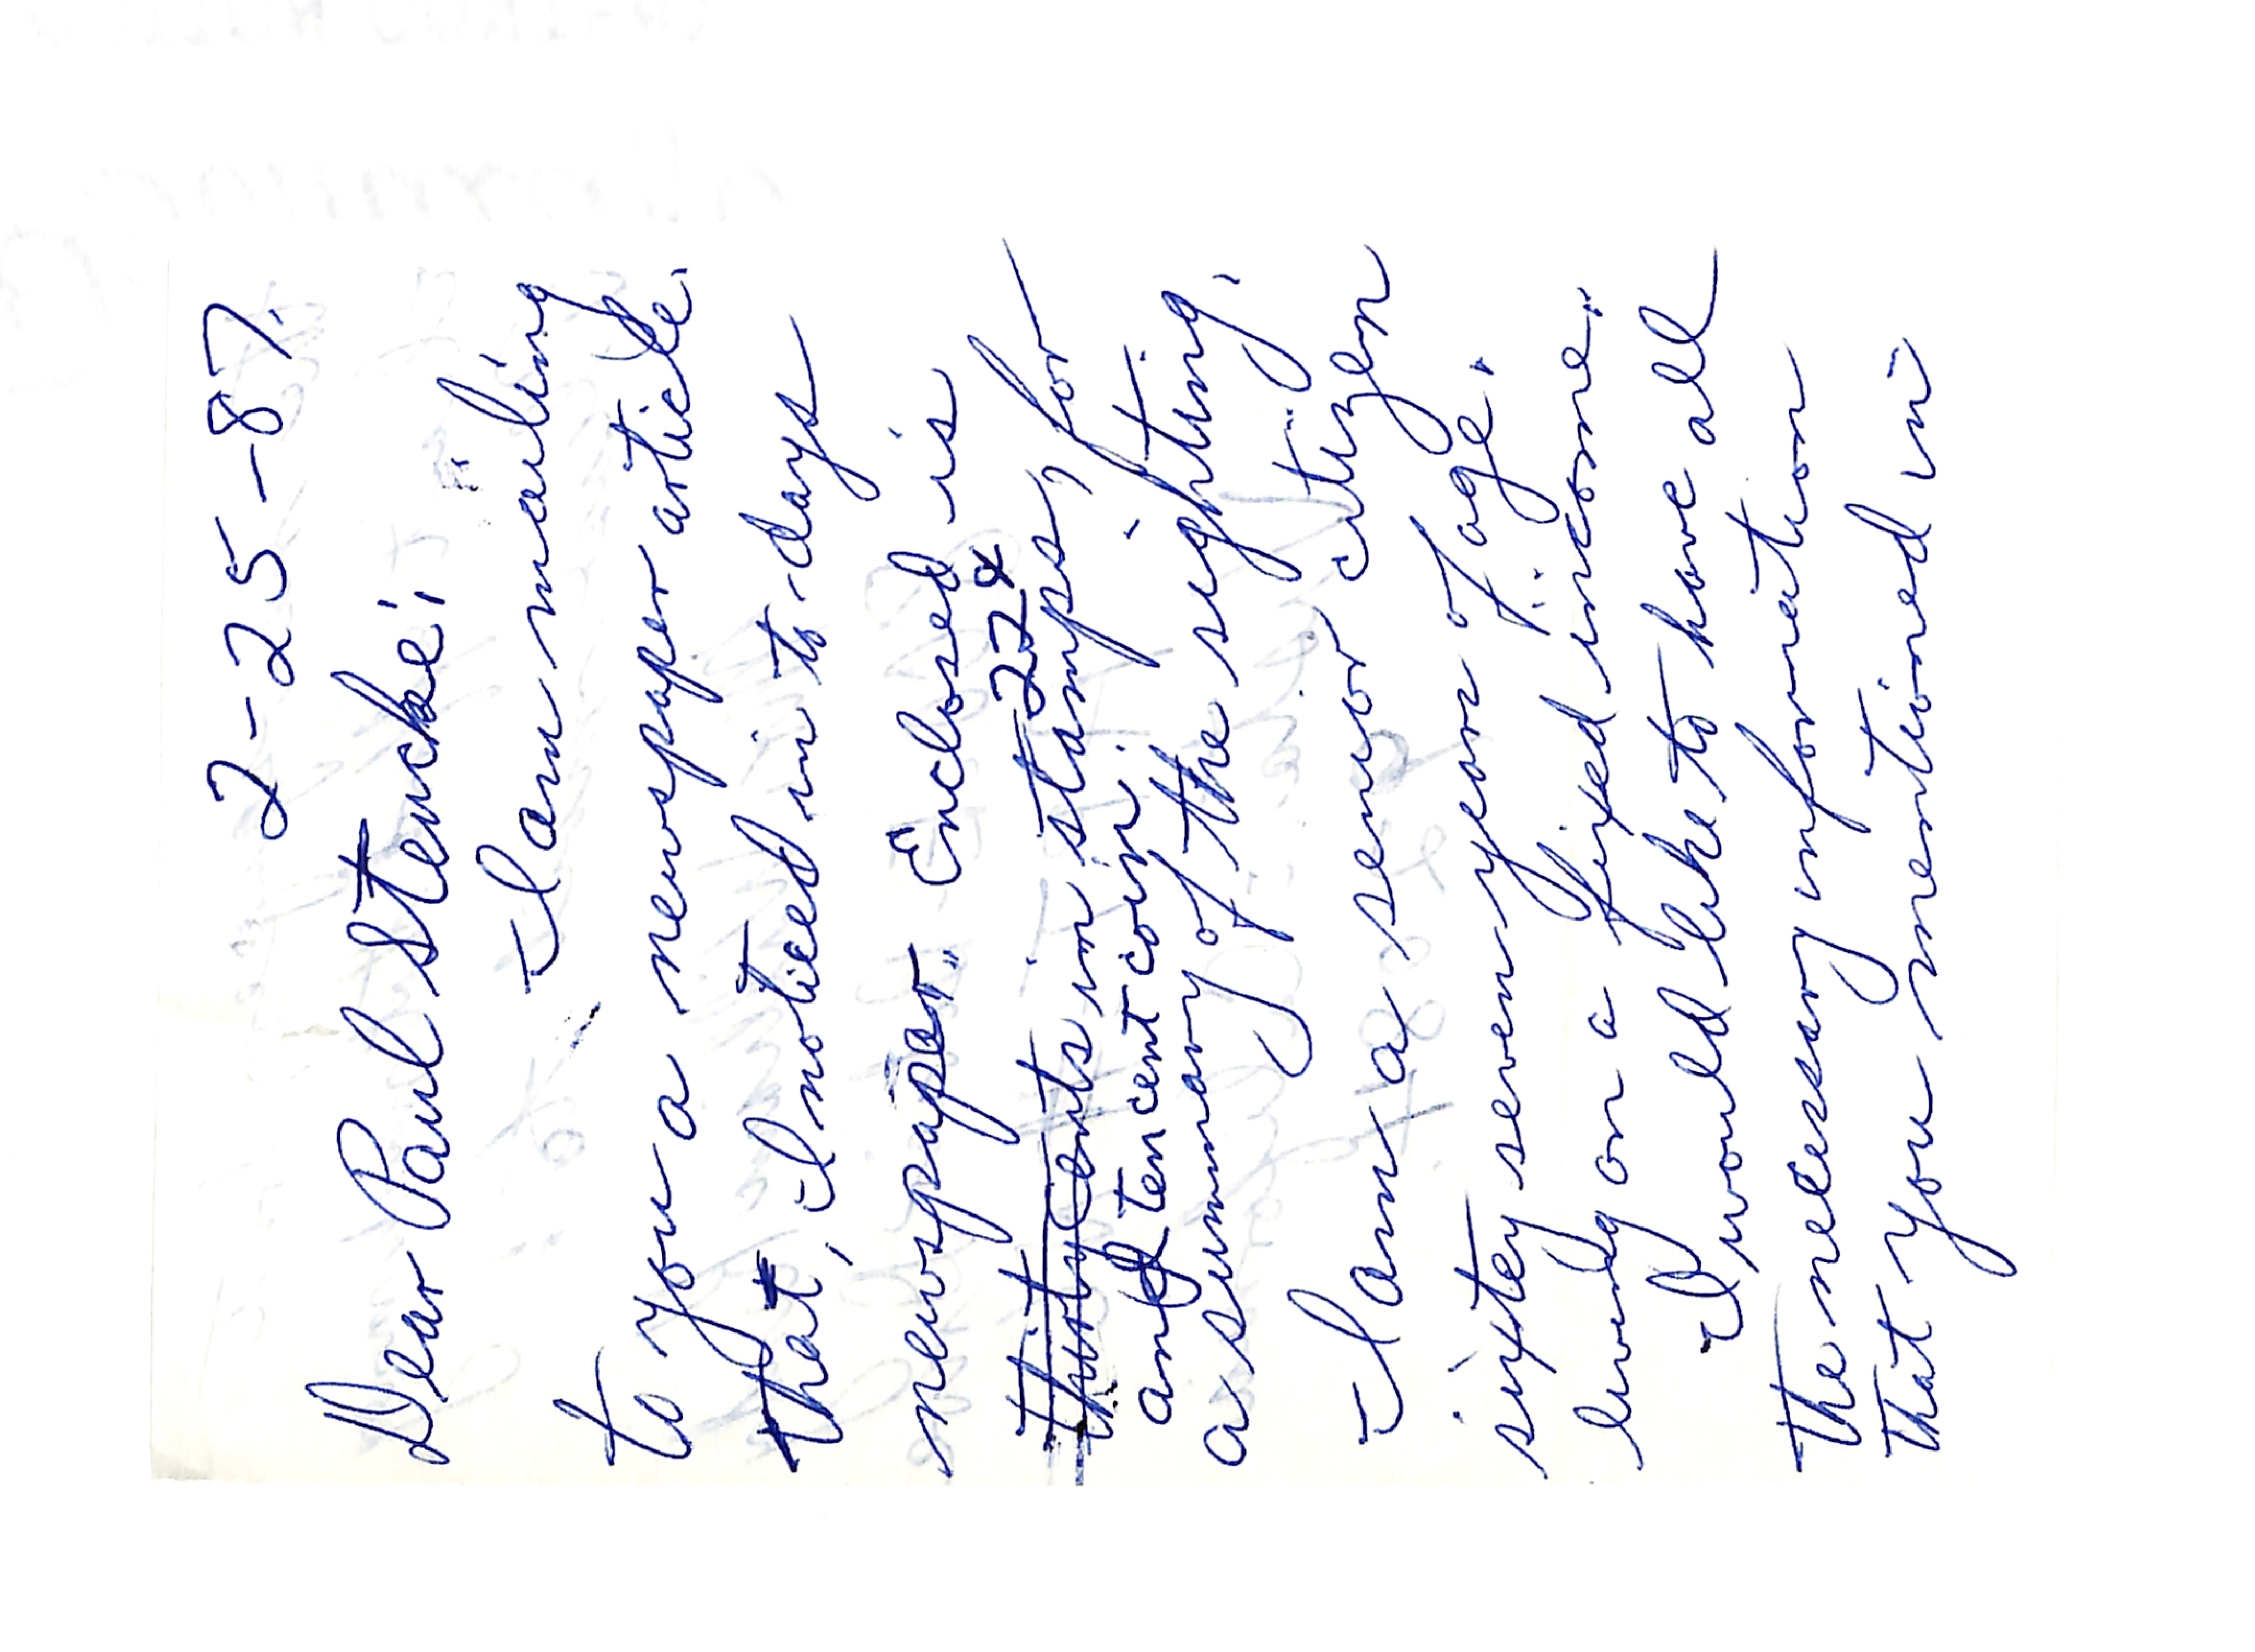 2-25-87.
Dear Paul Stencke;
I am mailing
to you a newspaper article
that, I noticed in to-days
newspaper. Enclosed is
thirty cents in 22¢ stamps, for
and ten cent coin;
a summary of the sighting.
I am a senior citizen
sixtey seven years of age.
living on a fixed income.
I would like to have all
the necessary information
that you mentioned in